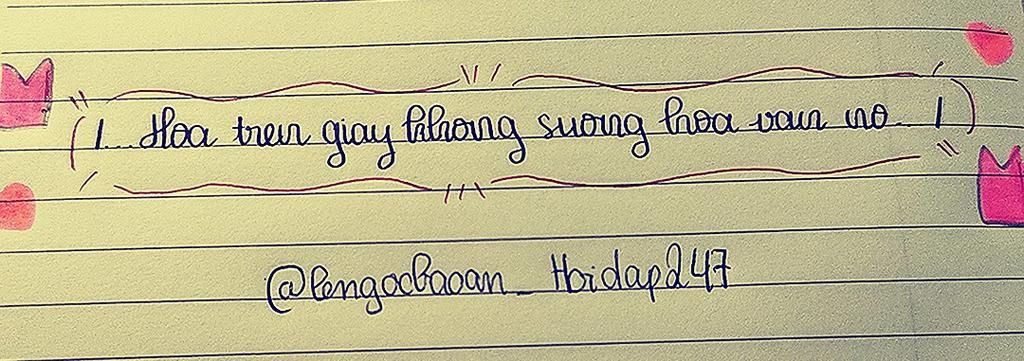 Hoa tren giay khong suong hoa van no
@lengocbaoan_Hoidap247